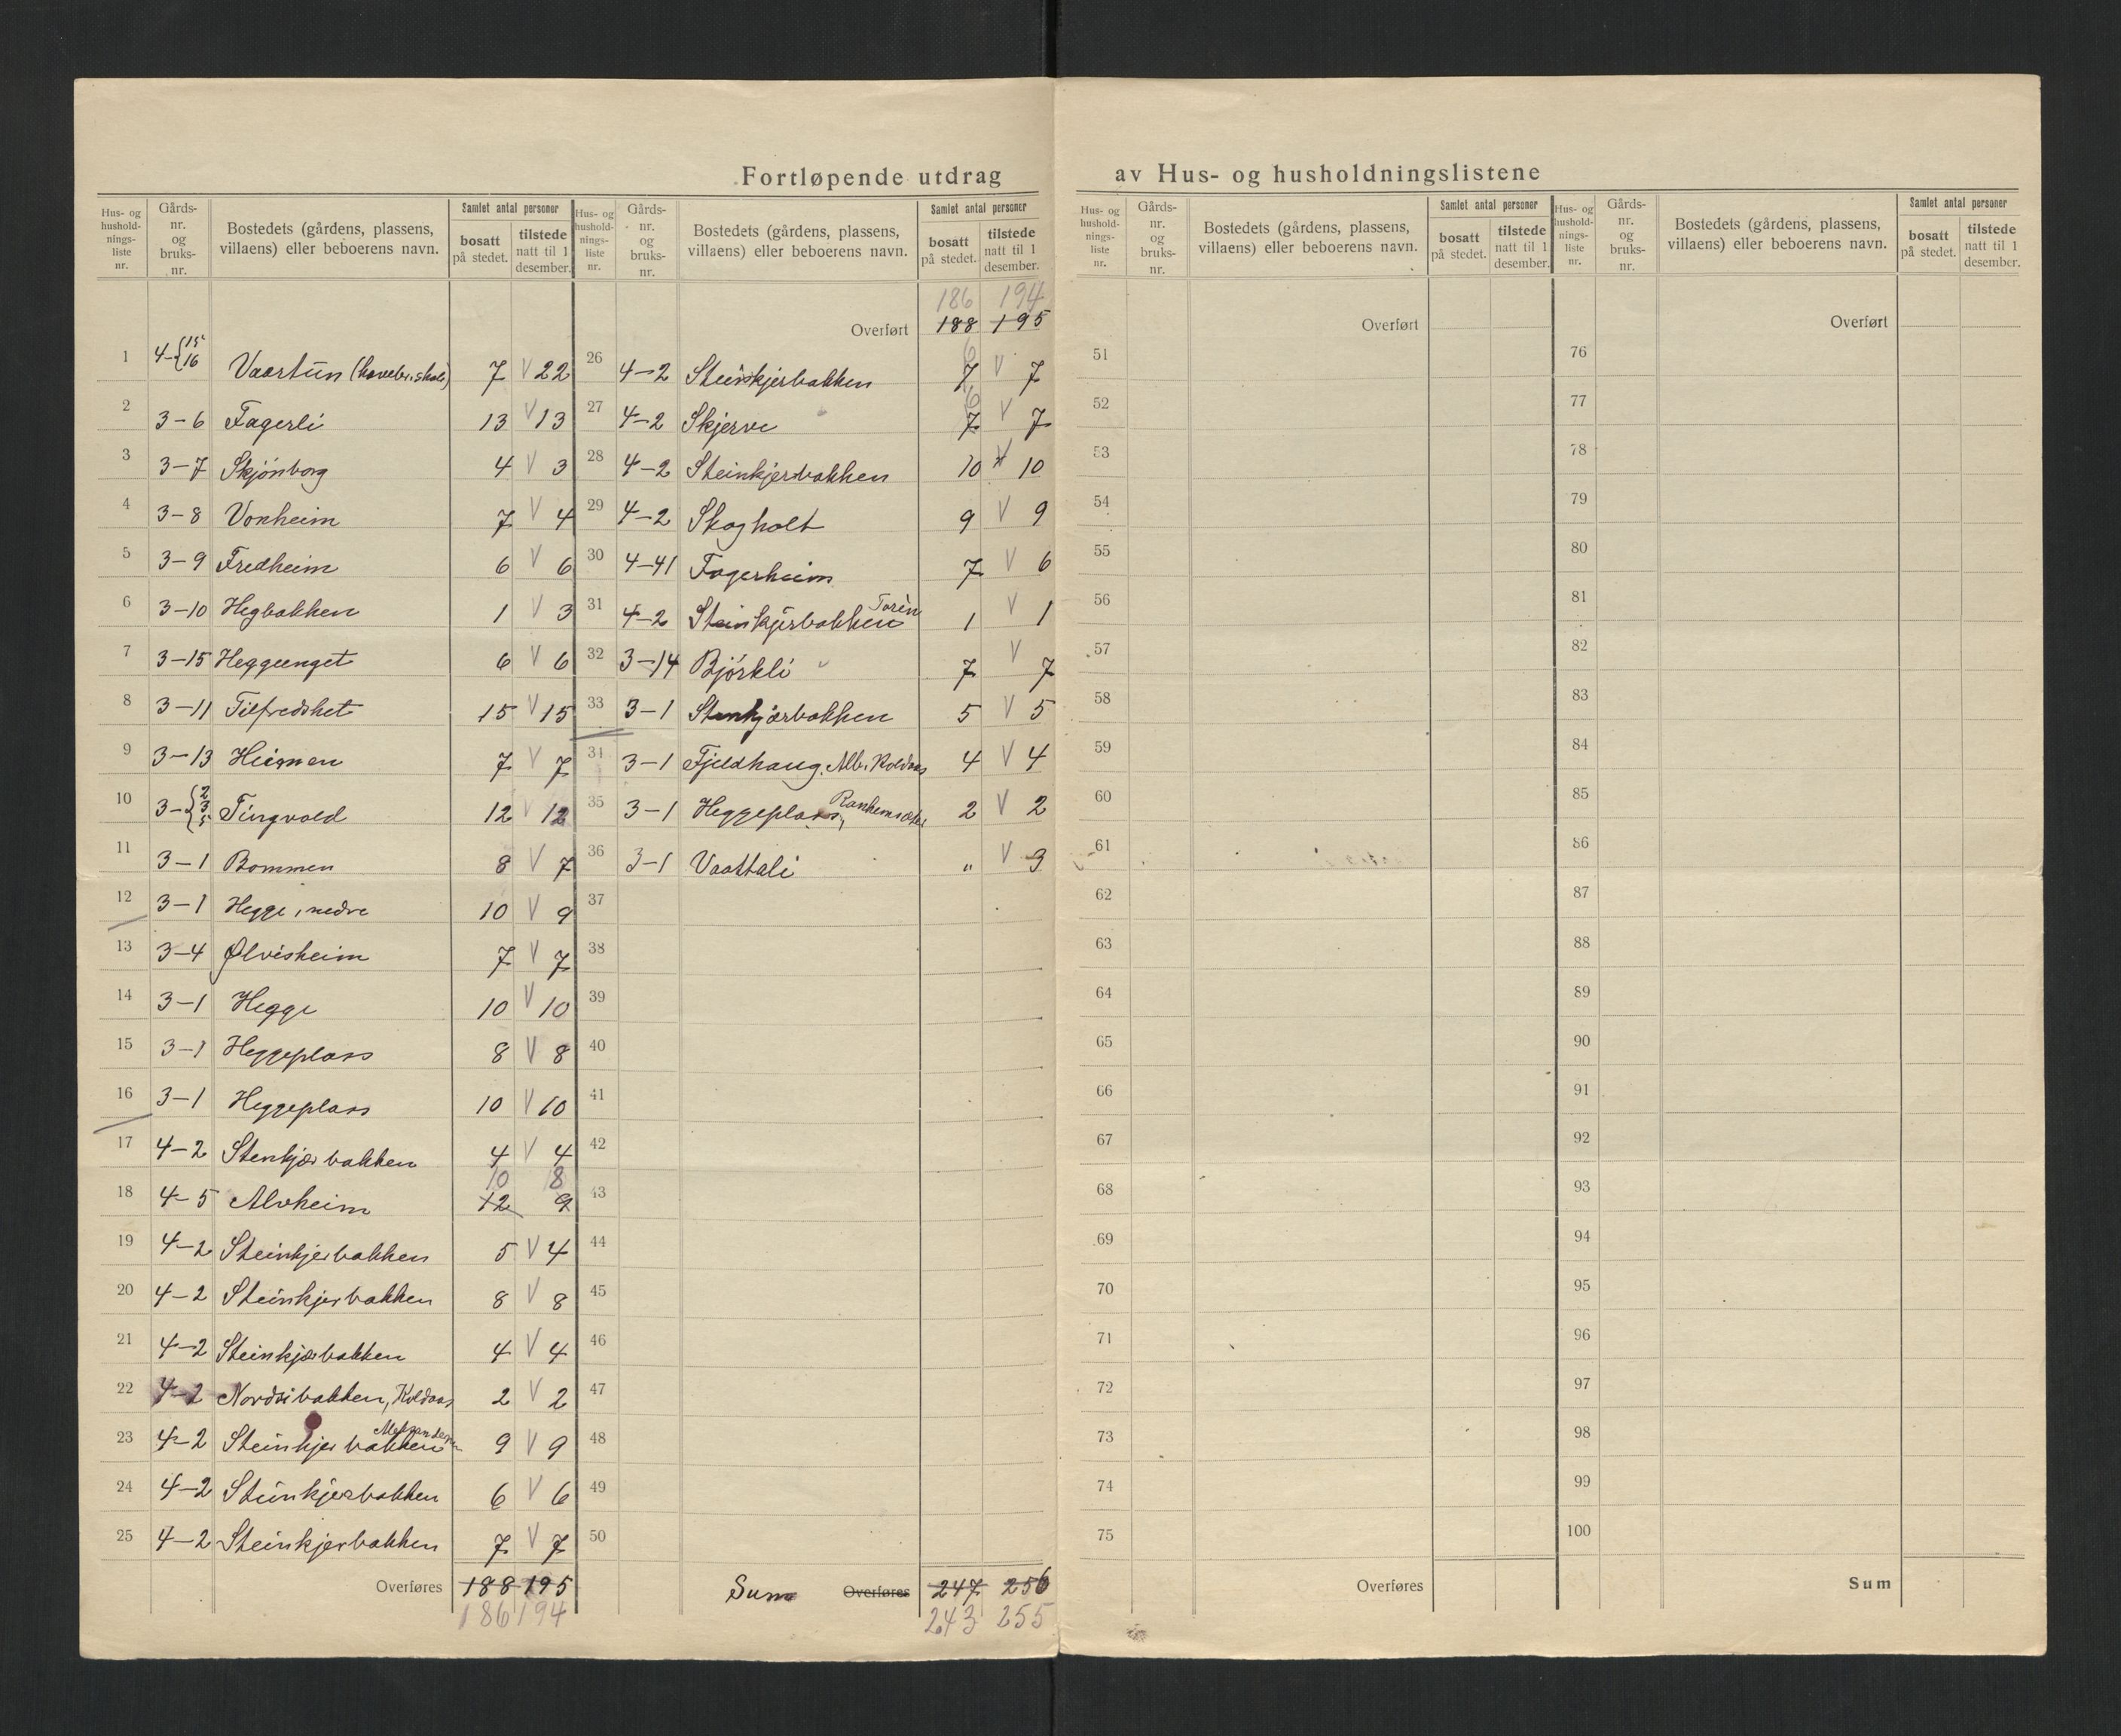 Fortløpende utdrag av Hus- og husholdningslistene
Hus- og hushold-nings-liste nr. | Gårds-nr. og bruks-nr. | Bostedets (gårdens, plassens, villaens) eller beboerens navn. | Samlet antal personer | bosatt på stedet. | tilstede natt til 1 desember.
1 4-{15 16 Vaartun (havebr.skole) 7 V 22
2 3-6 Fagerli 13 V 13
3 3-7 Skjönborg 4 V 3
4 3-8 Vonheim 7 V 4
5 3-9 Fredheim 6 V 6
6 3-10 Hegbakken 1 V 3
7 3-15 Heggeenget 6 V 6
8 3-11 Tilfredshet 15 V 15
9 3-13 Heimen 7 V 7
10 3-{2 3 5 Tingvold 12 V 12
11 3-1 Bommen 8 V 7
12 3-1 Hegge, nedre 10 V 9
13 3-4 Ølvisheim 7 V 7
14 3-1 Hegge 10 V 10
15 3-1 Heggeplass 8 V 8
16 3-1 Heggeplass 10 V 10
17 4-2 Stenkjærbakken 4 V 4
10 8
18 4-5 Alvheim 12 9
19 4-2 Steinkjerbakken 5 V 4
20 4-2 Steinkjerbakken 8 V 8
21 4-2 Steinkjærbakken 4 V 4
22 4-2 Nordsibakken, Koldaas 2 V 2
23 4-2 Steinkjerbakken Aleksandersen 9 V 9
24 4-2 Steinkjerbakken 6 V 6
25 4-2 Steinkjerbakken 7 V 7
Overføres 188 195
186 194
Hus- og hushold-nings-liste nr. | Gårds-nr. og bruks-nr. | Bostedets (gårdens, plassens, villaens) eller beboerens navn. | Samlet antal personer | bosatt på stedet. | tilstede natt til 1 desember.
186 194
Overført 188 195
26 4-2 Steinkjerbakken 7 6 V 7
27 4-2 Skjerve 7 6 V 7
28 4-2 Steinkjerbakken 10 V 10
29 4-2 Skogholt 9 V 9
30 4-41 Fagerheim 7 V 6
31 4-2 Steinkjerbakken Torèn 1 V 1
32 3-14 Björkli 7 V 7
33 3-1 Stenkjærbakken 5 V 5
34 3-1 Fjeldhaug. Alb. Koldaas 4 V 4
35 3-1 Heggeplass, 2 V 2
36 3-1 Vaattali " V 3
37
38
39
40
41
42
43
44
45
46
47
48
49
50
Sum Overføres 247 256
243 255
Hus- og hushold-nings-liste nr. | Gårds-nr. og bruks-nr. | Bostedets (gårdens, plassens, villaens) eller beboerens navn. | Samlet antal personer | bosatt på stedet. | tilstede natt til 1 desember.
Overført
51
52
53
54
55
56
57
58
59
60
61
62
63
64
65
66
67
68
69
70
71
72
73
74
75
Overføres
Hus- og hushold-nings-liste nr. | Gårds-nr. og bruks-nr. | Bostedets (gårdens, plassens, villaens) eller beboerens navn. | Samlet antal personer | bosatt på stedet. | tilstede natt til 1 desember.
Overført
76
77
78
79
80
81
82
83
84
85
86
87
88
89
90
91
92
93
94
95
96
97
98
99
100
Sum